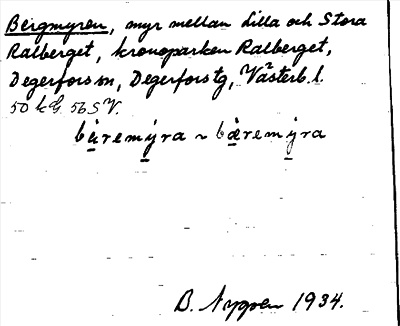 Bergmyren, myr mellan Lilla och Stora
Ralberget, kronoparken Ralberget,
Degerfors sn, Degerfors tg, Västerb. l.
50 kG 56 S V.
bæ̀remýra ~ bæ̀remýra
B. Nygren 1934.